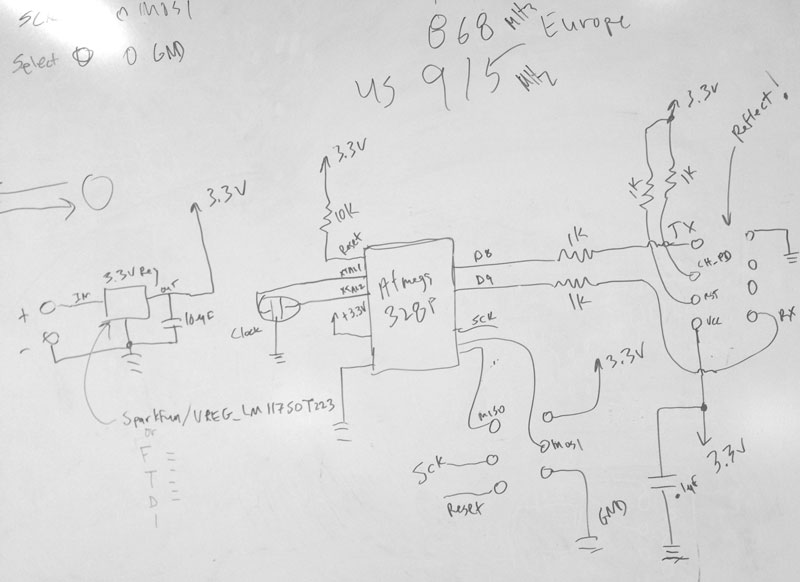 MOSI
Select
GND
868 MHz Europe
US 915 MHz
3.3V
Reflect!
3.3V
3.3V
1K
1K
10K
Reset
1K
TX
3.3V Reg
XTAL1
D8
CH_PD
+ IN
OUT
XTAL2
Atmega
328P
D9
RST
10uF
Clock
+3.3V
1K
VCC
RX
-
SCK
3.3V
Sparkfun/VREG_LM11750T223
or
F
T
D
I
MISO
MOSI
3.3V
SCK
.1uF
Reset
GND